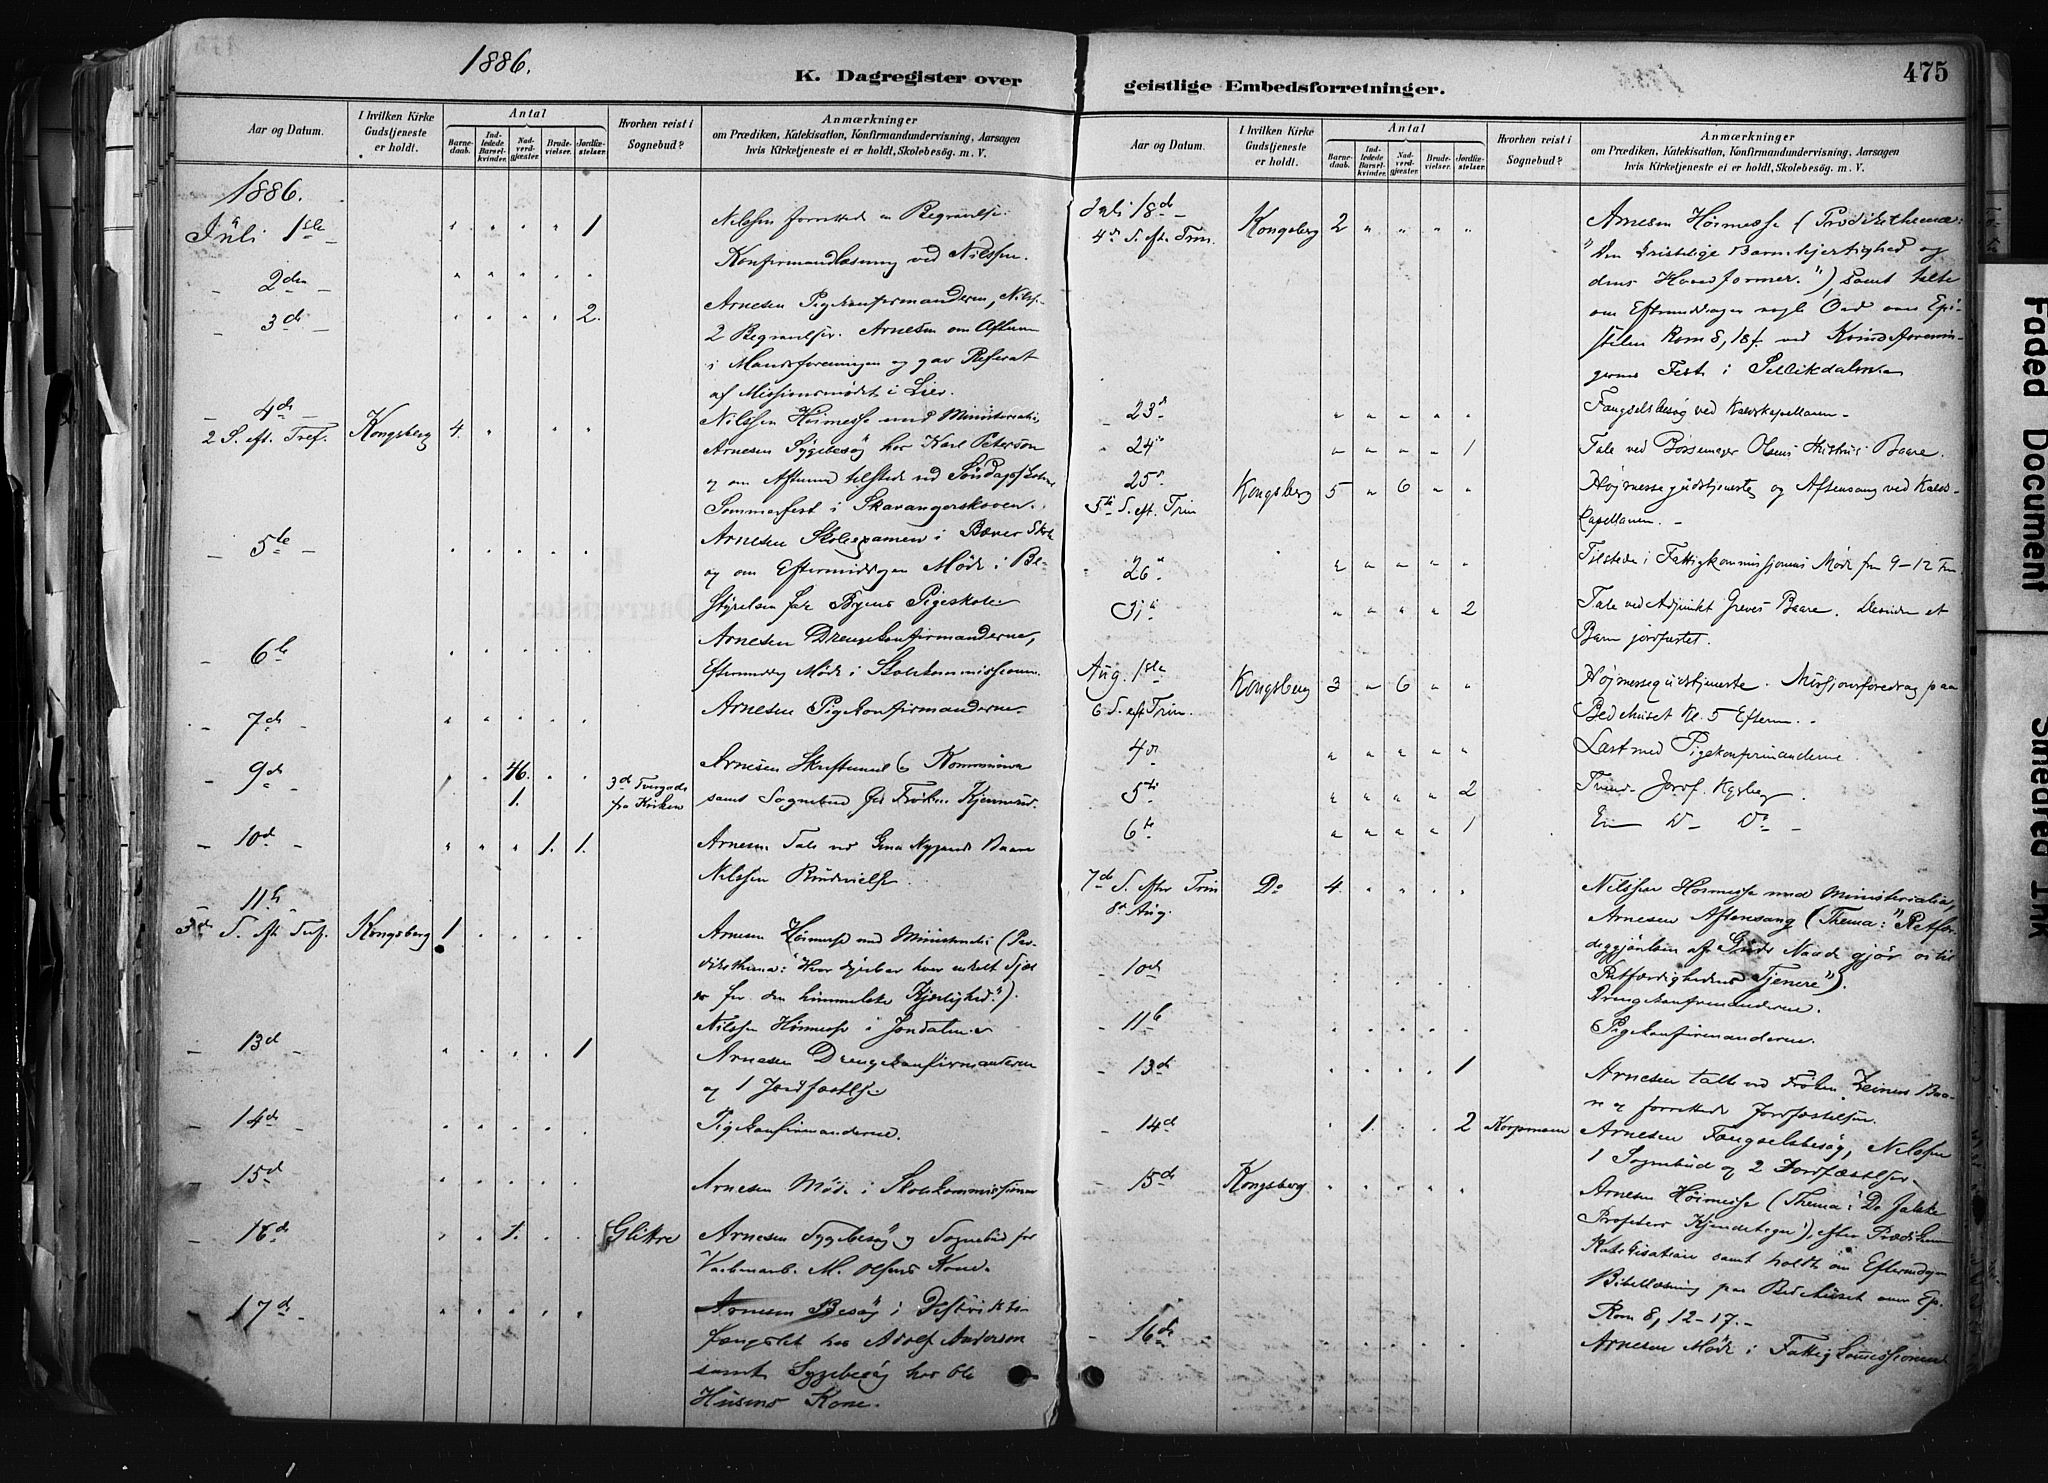 1886.
K. Dagregister over
Aar og Datum.
I hvilken Kirke Gudstjeneste er holdt.
Antal
Barnedaab.
Indledede Barselkvinder.
Nadverdgjæster.
Brudevielser.
Jordfæstelser.
Hvorhen reist i Sognebud?
Anmærkninger
om Prædiken, Katekisation, Konfirmandundervisning, Aarsagen
hvis Kirketjeneste ei er holdt, Skolebesøg. m. V.
1886.
Juli 1ste " " " " 1 Nilssen forrettede en Begravelse.
- 2den - " " " " " Konfirmandlæsning ved Nilssen.
- 3de - " " " " 2. Arnesen Pigekonfirmanderne, Nilss.
2 Begravelser. Arnesen om Aftenen
i Mandsforeningen og gav Referat
af Missionsmødet i Lier.
- 4de - Nilssen Høimesse med Ministerialia,
2 S. eft. Tref. Kongsberg 4. " " " Arnesen Sygebesøg hos Karl Peterson
og om Aftenen tilstede ved Søndagsskolens
Sommerfest i Skavangerskoven.
- 5te - " " " " " Arnesen Skoleexamen i Bæver Skole
og om Eftermiddagen Møde i Be-
styrelsen for Byens Pigeskole
- 6te " " " " " Arnesen Drengekonfirmanderne,
Eftermiddag Møde i Skolekommissionen.
- 7de - " " " " " Arnesen Pigekonfirmanderne.
- 9de - " " 46. " " Arnesen Skriftemaal & Kommunion
1. 3de Tvergade fra Kirken samt Sognebud for Frøken
- 10de - " " " 1. 1. Arnesen Tale ved Baare
Nilssen Brudevielse.
- 11te
3de S. eft. Tref. Kongsberg 1 " " " " Arnesen Høimesse med Ministerialia (Præ-
dikethema: "Hvor dyrebar hver enkelt Sjæl
er for den himmelske Kjærlighed.").
Nilssen Høimesse i Jondalen.
- 13de - " " " " 1 Arnesen Drengekonfirmanterne
og 1 Jordfæstelse
- 14de " " " " " Pigekonfirmanderne.
- 15de " " " " " Arnesen Møde i Skolekommissionen
- 16de " " 1. " " Glittre Arnesen Sygebesøg og Sognebud for
M. Olsens Kone.
- 17de " " " " " Arnesen Besøg i Distrikts-
fængslet hos Adolf Anderson
samt Sygebesøg hos Ole
Husens Kone.
geistlige Embedsforretninger.
475
Aar og Datum.
I hvilken Kirke Gudstjeneste er holdt.
Antal
Barnedaab.
Indledede Barselkvinder.
Nadverdgjæster.
Brudevielser.
Jordfæstelser.
Hvorhen reist i Sognebud?
Anmærkninger
om Prædiken, Katekisation, Konfirmandundervisning, Aarsagen
hvis Kirketjeneste ei er holdt, Skolebesøg. m. V.
Juli 18de Arnesen Høimesse (Prædikethema:
4de S. eft. Trin. Kongsberg 2 " " " " "Den kristelige Barmhjertighed og
dens Hovedformer.") samt talte
om Eftermiddagen nogle Ord over Epi-
stelen Rom 8, 18 f. ved Kvindeforenin-
gernes Fest i Sellikdalen
- 23de " " " " " Fængselsbesøg ved Kaldskapellanen.
- 24de " " " " 1 Tale ved Bøssemager Olsens Baare.
25de Kongsberg 5 " 6 " " Højmessegudstjeneste og Aftensang ved Kalds-
5te S. eft. Trin capellanen. -
- 26de " " " " " Tilstede i Fattigkommissjonens Møde fra 9-12 Fm.
31te " " " " 2 Tale ved Adjunkt Greves Baare. Desuden et
Barn jordfæstet.
Aug. 1ste Kongsberg 3 " 6 " " Højmessegudstjeneste. Missjonsforedrag paa
6 S. eft Trin. Bedehuset Kl. 5 Efterm.
4de " " " " " Læst med Pigekonfirmanderne
5te " " " " 2 Tvende Jordf. Kgsberg.
6te " " " " 1 En Do - Do -
7de S. efter Trin Do 4. " " " " Nilssen Høimesse med Ministerialia,
8de Aug. Arnesen Aftensang (Thema: "Retfær-
diggjørelsen af Guds Naade gjør os til
Retfærdighedens Tjenere").
- 10de " " " " " Drengekonfirmanderne.
- 11te " " " " " Pigekonfirmanderne.
- 13de " " " " 1 Arnesen talte ved Frøken Baa-
re og forrettede Jordfæstelsen.
- 14de " 1. " " 2 Arnesen Fængselsbesøg, Nilssen
1 Sognebud og 2 Jordfæstelser
- 15de Kongsberg " " " " " Arnesen Høimesse (Thema: "De falske
Profeters Kjendetegn"), efter Prædikenen
Katekisation samt holdt om Eftermiddagen
Bibellæsning paa Bedehuset over Ep.
Rom 8, 12-17. -
- 16de " " " " " Arnesen Møde i Fattigkommissionen
Faded Document
Smeared Ink